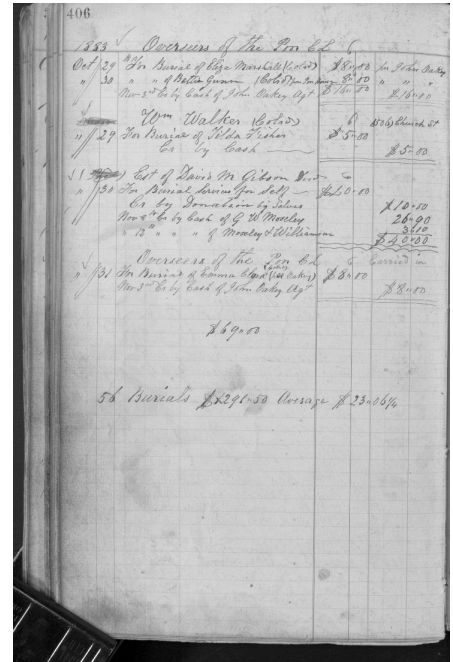 406
1883 Overseers of the Poor
Oct 29 For Burial of Eliza Marshall (Cold) $8.00 John Oakey
" 30 " " of Gunn (Cold) 8.00 " "
Nov 3rd Cr by Cash of John Oakey Agt $16.00 $16.00
Wm Walker (Cold) Church St
" 29 For Burial of Tilda Fisher $5.00
Cr by Cash $5.00
Est of David M. Gibson
" 30 For Burial Service for Self $40.00
Cr by Donation by Selves $10.00
Cr by Cash of G W Moseley 26.90
" " " of Mosley & Williamson 3.10
$40.00
Overseers of the Poor Carried in
" 31 For Burial of Emma $8.00
Nov 3rd Cr by Cash of John Oakey Agt $8.00
$69.00
56 Burials $1291.50 Average $23.06¼